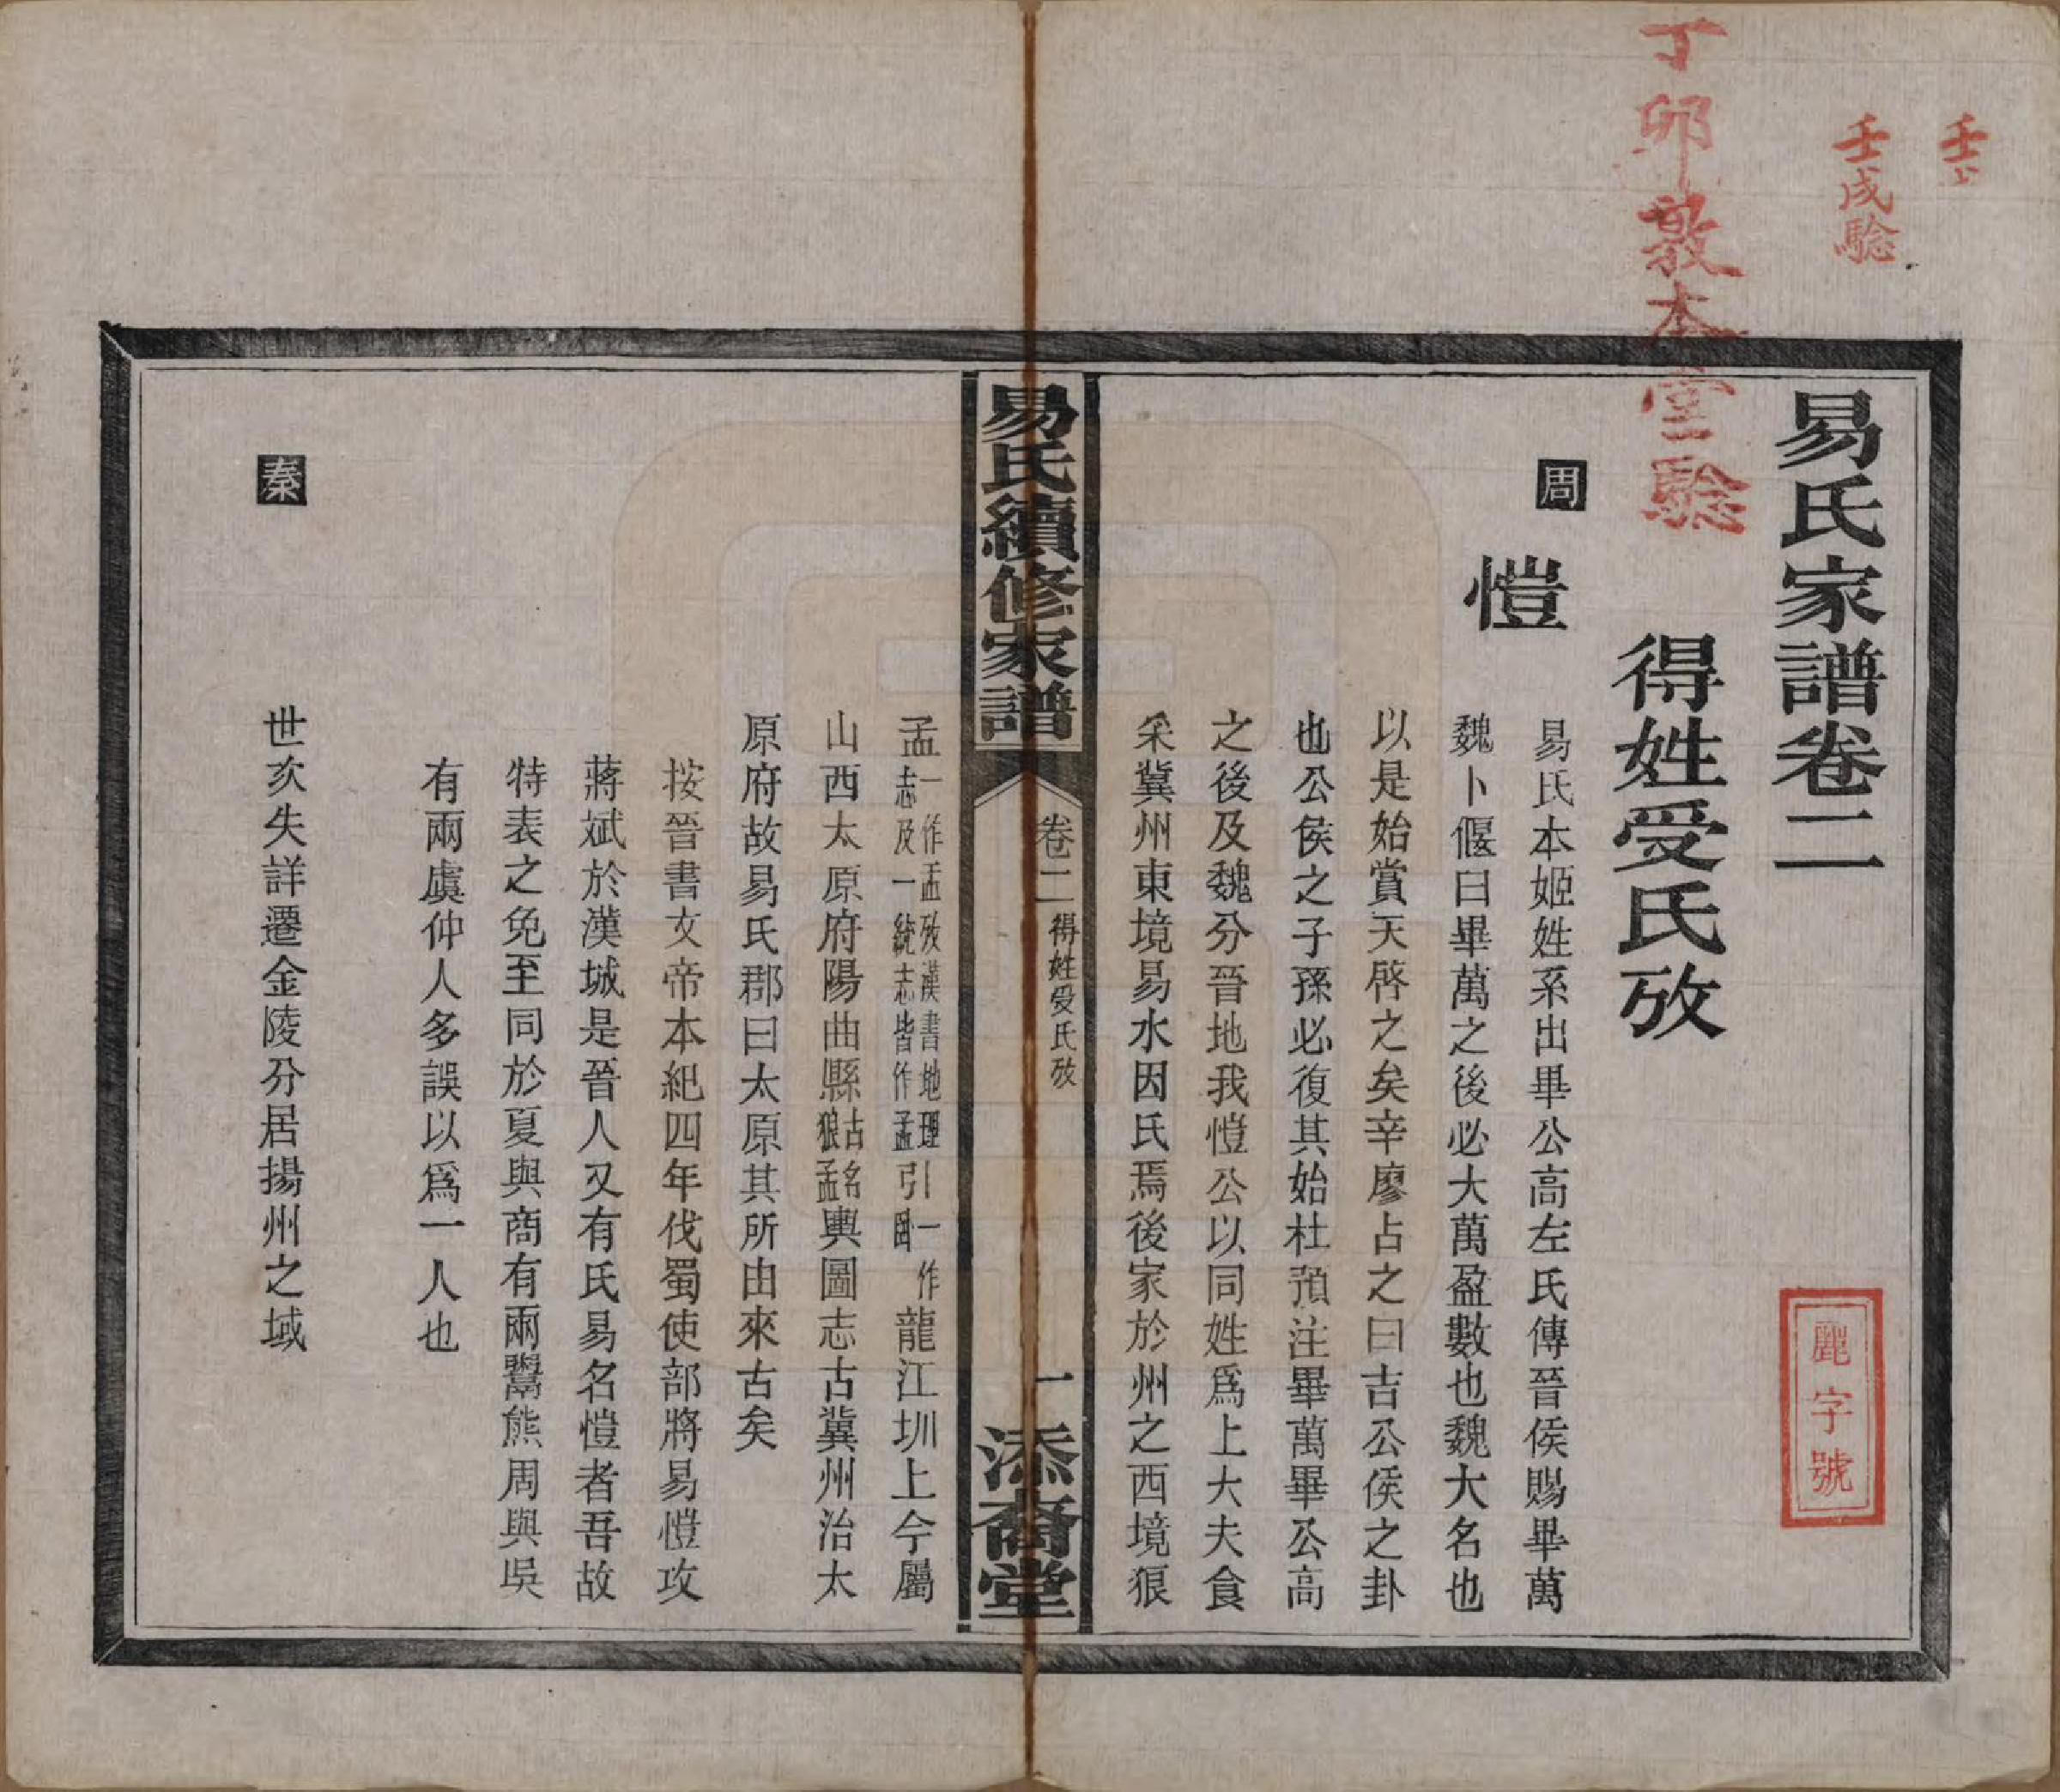 壬
壬戌騐
丁卯敦本堂騐
易氏家譜卷二
麗字號
得姓受氏攷
周
愷
易氏本姬姓系出畢公高左氏傳晉侯賜畢萬
魏卜偃曰畢萬之後必大萬盈數也魏大名也
以是始賞天啓之矣辛廖占之曰吉公侯之卦
也公侯之子孫必復其始杜預注畢萬畢公高
之後及魏分晉地我愷公以同姓爲上大夫食
采冀州東境易水因氏焉後家於州之西境狼
易氏續修家譜
卷二
得姓受氏攷
一
添裔堂
孟一作盂攷漢書地理引一作
志及一統志皆作孟龍江圳上今屬
山西太原府陽曲縣古名狼孟輿圖志古冀州治太
原府故易氏郡曰太原其所由來古矣
按晉書文帝本紀四年伐蜀使部將易愷攻
蔣斌於漢城是晉人又有氏易名愷者吾故
特表之免至同於夏與商有兩鬻熊周與吳
有兩虞仲人多誤以爲一人也
秦
世次失詳遷金陵分居揚州之域